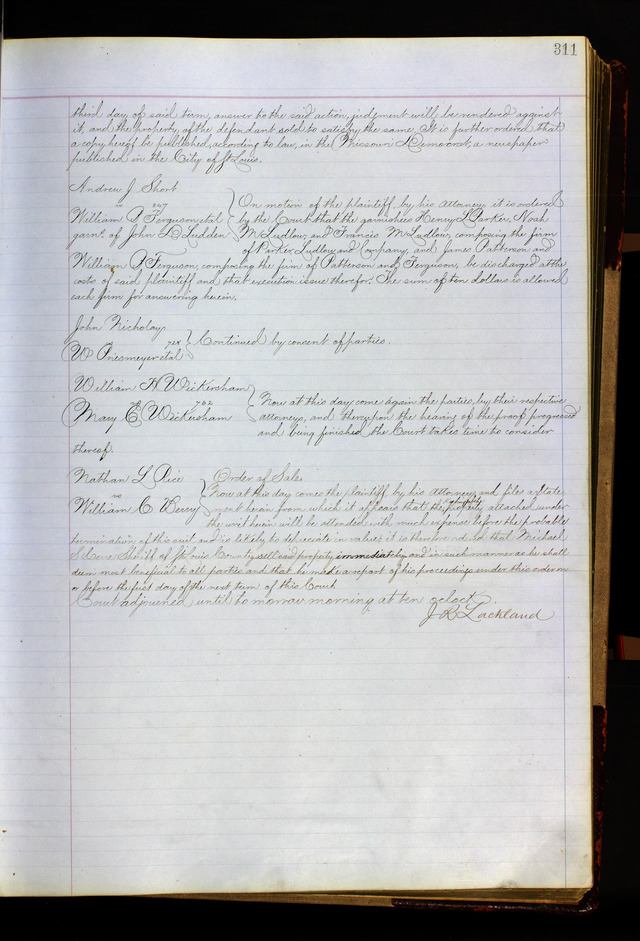 311
third day of said term, answer to the said action, judgment will be rendered against
it, and the property of the defendant sold to satisfy the same. It is further ordered that
a copy hereof be published, according to law, in the Missouri Democrat, a newspaper
published in the City of St Louis.
Andrew J. Short
vs 247
William A Ferguson, etal
garnt. of John D Ledden
On motion of the plaintiff, by his Attorney, it is ordered
by the Court that the garnishees Henry L Parker, Noah
M Ludlow, and Francis M Ludlow, composing the firm
of Parker Ludlow and Company, and James Patterson and
William A Ferguson, composing the firm of Patterson and Ferguson, be discharged at the
costs of said plaintiff and that execution issue therefor. The sum of ten dollars is allowed
each firm for answering herein.
John Nicholay
vs 728
W Priesmeyer etal
Continued by consent of parties.
William H Wickersham
vs 702
Mary E. Wickersham
Now at this day come again the parties, by their respective
attorneys, and thereupon the hearing of the proof progressed
and being finished, the Court takes time to consider
thereof.
Nathan L Rice
vs
William C Berry
Order of Sale.
Now at this day comes the plaintiff, by his Attorney, and files a State-
ment herein from which it appears that the property attached under
the writ herein will be attended with much expense before the probable
termination of this suit and is likely to depreciate in value; it is therefore ordered that Michael
S. Cerre Sheriff of St Louis County sell said property immediately and in such manner as he shall
deem most beneficial to all parties and that he make a report of his proceedings under this order on
or before the first day of the next term of this Court
Court adjourned until to morrow morning at ten oclock.
J R Lackland